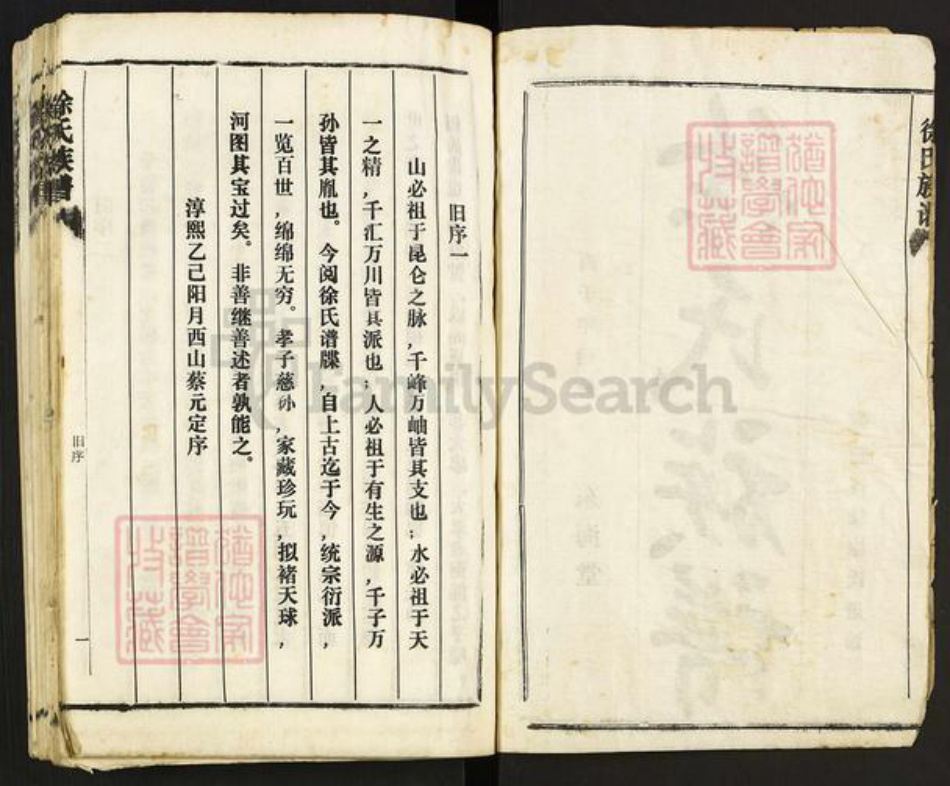 徐氏族谱
旧序一
山必祖于昆仑之脉,千峰万岫皆其支也;水必祖于天
一之精,千汇万川皆其派也;人必祖于有生之源,千子万
孙皆其胤也。今阅徐氏谱牒,自上古迄于今,统宗衍派,
一览百世,绵绵无穷。孝子慈孙,家藏珍玩,拟褚天球,
河图其宝过矣。非善继善述者孰能之。
淳熙乙己阳月西山蔡元定序
徐氏族谱
旧序
一
FamilySearch